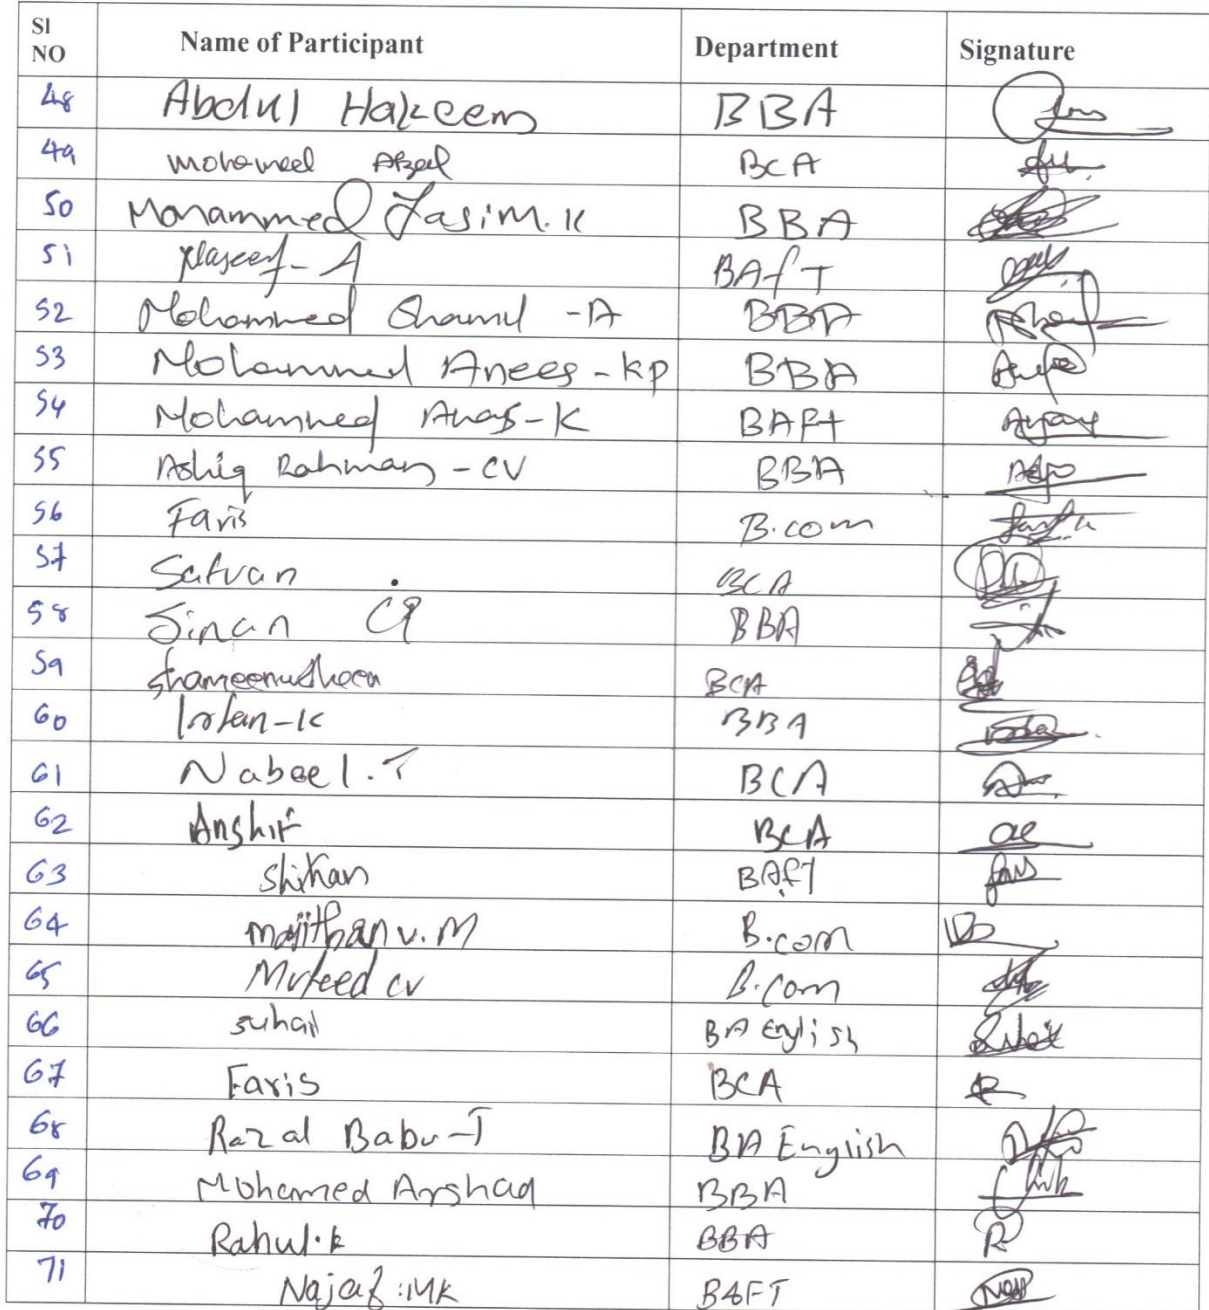 Sl NO Name of Participant Department Signature
48 Abdul Hakeem BBA
49 Mohameed Afzal BCA
50 Mohammed Jasim.K BBA
51 Naseef-A BAfT
52 Mohammed Shamil -A BBA
53 Mohammed Anees-KP BBA
54 Mohammed Anas-K BAFt
55 Ashiq Rahman-CV BBA
56 Faris B.com
57 Safvan BCA
58 Sinan BBA
59 BCA
60 Irfan-K BBA
61 Nabeel.T BCA
62 Anshif BCA
63 Shihan BAFT
64 B.com
65 Mufeed cv B.Com
66 suhail BA English
67 Faris BCA
68 Razal Babu-T BA English
69 Mohamed Arshad BBA
70 Rahul.k BBA
71 Najaf :MK BAFT